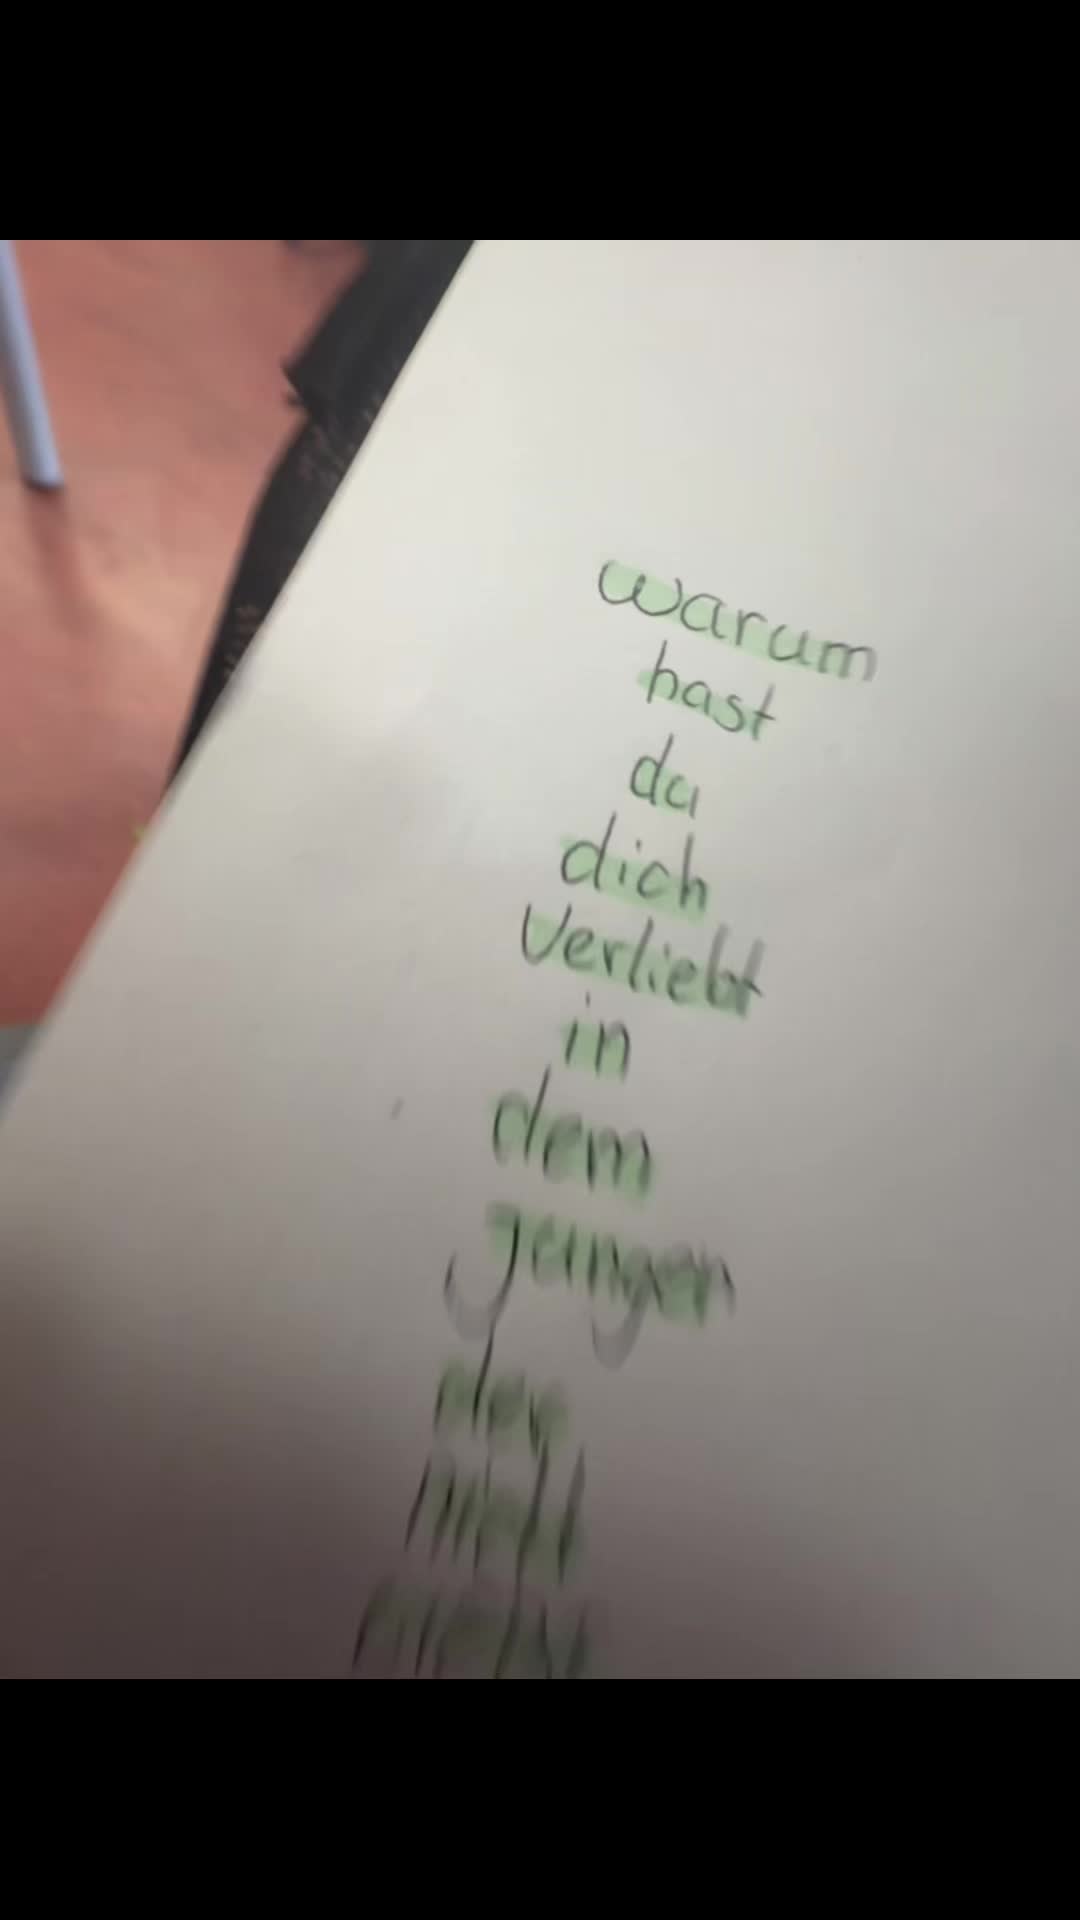 warum
hast
du
dich
Verliebt
in
dem
jungen
der